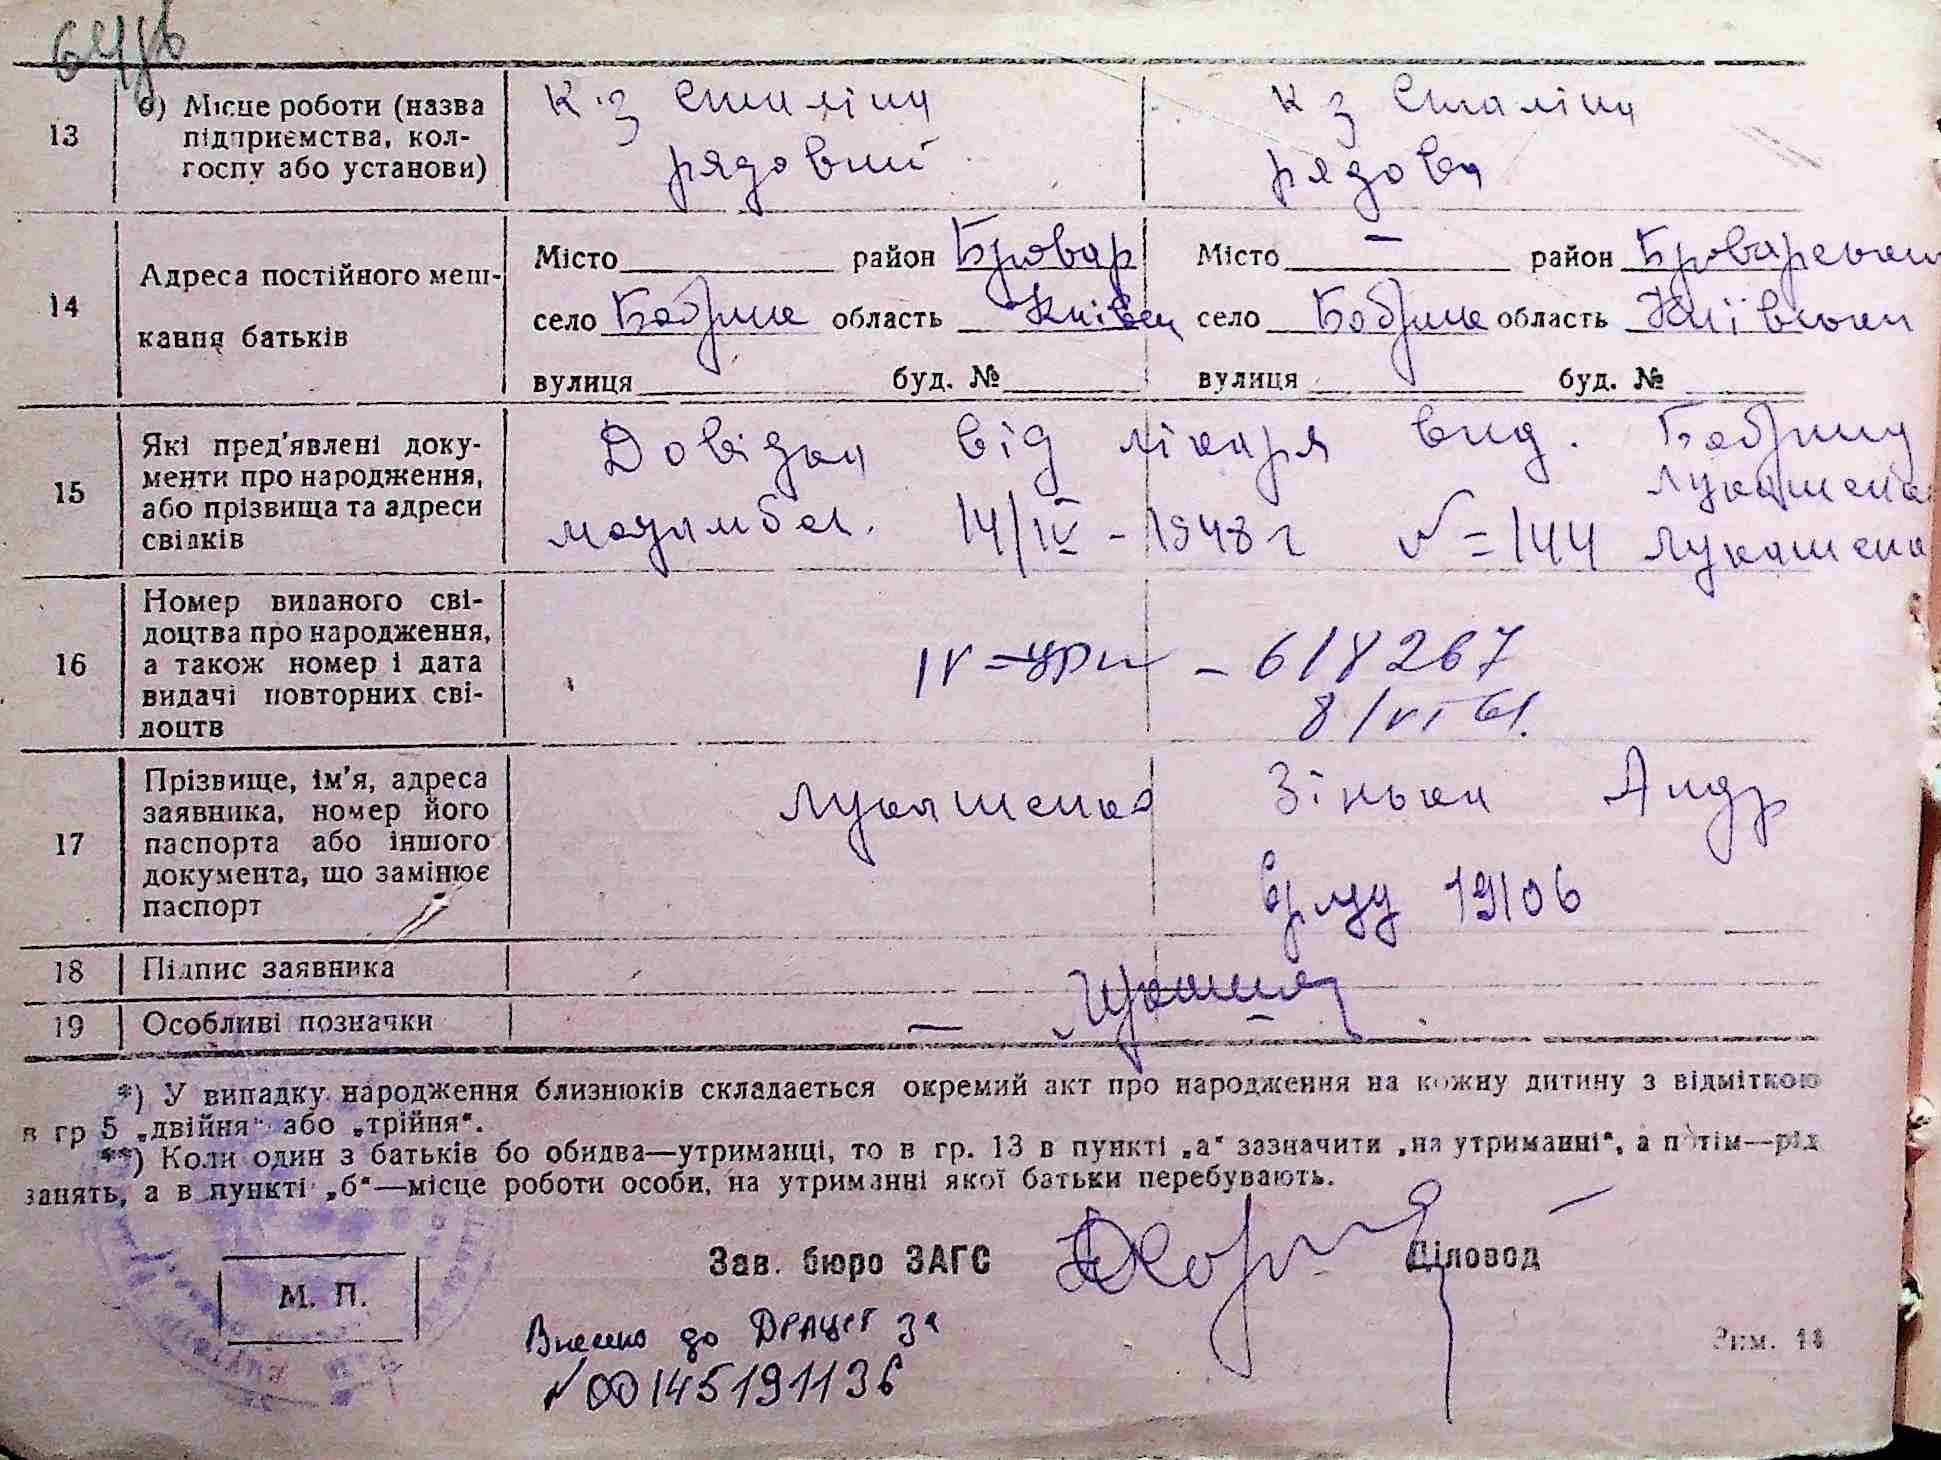 13
б) Місце роботи (назва
підприємства, кол-
госпу або установи)
к-з Сталіна
рядовий
к з Сталіна
рядова
14
Адреса постійного меш-
кання батьків
Місто район Бровар
село Бобрик область Київськ
вулиця буд. №
Місто — район Броварський
село Бобрик область Київськ
вулиця буд. №
15
Які пред'явлені доку-
менти про народження,
або прізвища та адреси
свідків
Довідка від лікаря вид. Бобриц
медамбул. 14/IV - 1948 г №=144
Лукашенко
Лукашенко
16
Номер виданого сві-
доцтва про народження,
а також номер і дата
видачі повторних сві-
доцтв
IV - - 618267
8/VI 61.
17
Прізвище, ім'я, адреса
заявника, номер його
паспорта або іншого
документа, що замінює
паспорт
Лукашенко Зінька Андр
19106
18
Підпис заявника
19
Особливі позначки
— —
*) У випадку народження близнюків складається окремий акт про народження на кожну дитину з відміткою
в гр 5 „двійня" або „трійня".
**) Коли один з батьків бо обидва—утриманці, то в гр. 13 в пункті „а" зазначити „на утриманні", а потім—рід
занять, а в пункті „б"—місце роботи особи, на утриманні якої батьки перебувають.
М. П.
Зав. бюро ЗАГС
Діловод
Внесено до ДРАЦСГ за
№00145191136
Зим. 14